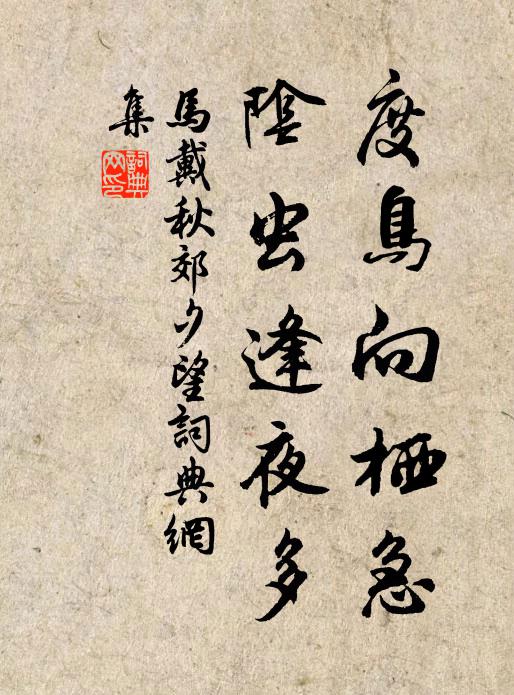 度鳥向栖急
陰虫逢夜多
馬戴秋郊夕望詞典網
集
詞典
网印